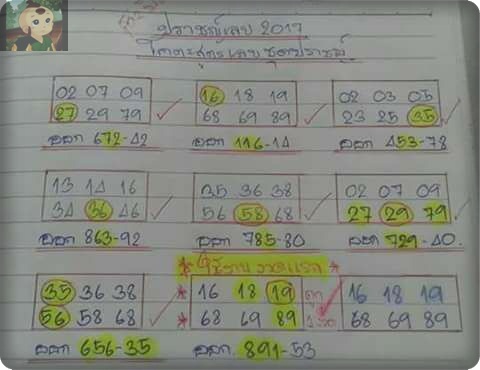 ปราชญ์เลข 2017
โคตรสูตรเลข ชุดปราชญ์
02 07 09
27 29 79
ออก 672-42
16 18 19
68 69 89
ออก 116-14
02 03 05
23 25 35
ออก 453-78
13 14 16
34 36 46
ออก 863-92
35 36 38
56 58 68
ออก 785-80
02 07 09
27 29 79
ออก 729-40.
35 36 38
56 58 68
ออก 656-35
* ใช้งาน งวดแรก *
* 16 18 19
* 68 69 89
ออก 891-53
16 18 19
68 69 89